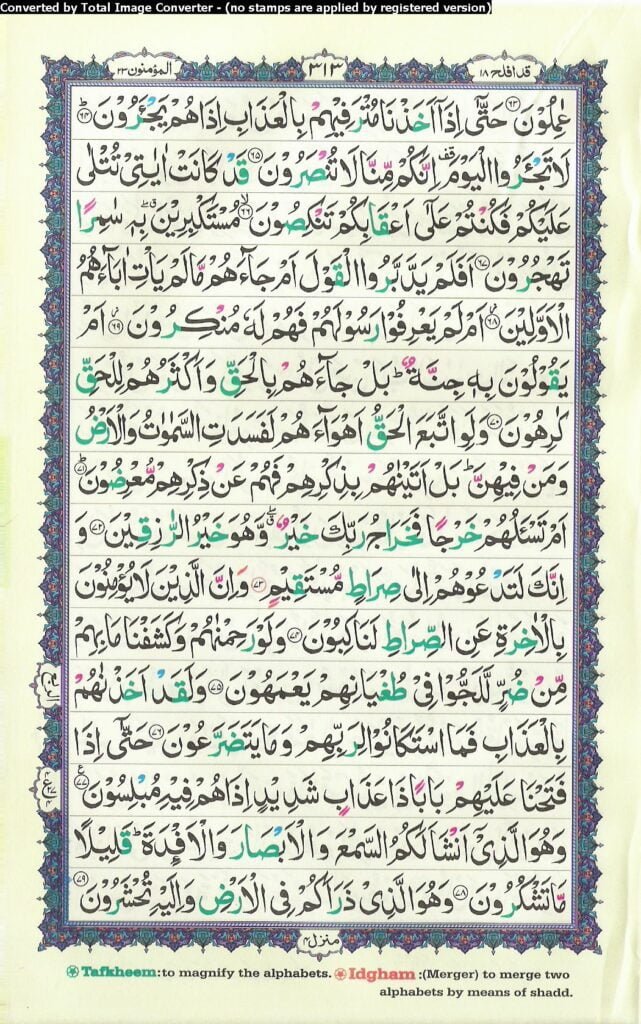 Converted by Total Image Converter - (no stamps are applied by registered version)
قد افلح ١٨
٣١٣
المؤمنون ٢٣
عٰمِلُوْنَ ۝٦٣ حَتّٰۤى اِذَاۤ اَخَذْنَا مُتْرَفِيْهِمْ بِالْعَذَابِ اِذَا هُمْ يَجْـَٔرُوْنَ ؕ۝٦٤
لَا تَجْـَٔرُوا الْيَوْمَ ۫ اِنَّكُمْ مِّنَّا لَا تُنْصَرُوْنَ ۝٦٥ قَدْ كَانَتْ اٰيٰتِيْ تُتْلٰى
عَلَيْكُمْ فَكُنْتُمْ عَلٰۤى اَعْقَابِكُمْ تَنْكِصُوْنَ ۙ۝٦٦ مُسْتَكْبِرِيْنَ ۖۗ بِهٖ سٰمِرًا
تَهْجُرُوْنَ ۝٦٧ اَفَلَمْ يَدَّبَّرُوا الْقَوْلَ اَمْ جَآءَهُمْ مَّا لَمْ يَاْتِ اٰبَآءَهُمُ
الْاَوَّلِيْنَ ۝٦٨ اَمْ لَمْ يَعْرِفُوْا رَسُوْلَهُمْ فَهُمْ لَهٗ مُنْكِرُوْنَ ۝٦٩ اَمْ
يَقُوْلُوْنَ بِهٖ جِنَّةٌ ؕ بَلْ جَآءَهُمْ بِالْحَقِّ وَاَكْثَرُهُمْ لِلْحَقِّ
كٰرِهُوْنَ ۝٧٠ وَلَوِ اتَّبَعَ الْحَقُّ اَهْوَآءَهُمْ لَفَسَدَتِ السَّمٰوٰتُ وَالْاَرْضُ
وَمَنْ فِيْهِنَّ ؕ بَلْ اَتَيْنٰهُمْ بِذِكْرِهِمْ فَهُمْ عَنْ ذِكْرِهِمْ مُّعْرِضُوْنَ ؕ۝٧١
اَمْ تَسْـَٔلُهُمْ خَرْجًا فَخَرَاجُ رَبِّكَ خَيْرٌ ۖۗ وَّهُوَ خَيْرُ الرّٰزِقِيْنَ ۝٧٢ وَ
اِنَّكَ لَتَدْعُوْهُمْ اِلٰى صِرَاطٍ مُّسْتَقِيْمٍ ۝٧٣ وَاِنَّ الَّذِيْنَ لَا يُؤْمِنُوْنَ
بِالْاٰخِرَةِ عَنِ الصِّرَاطِ لَنٰكِبُوْنَ ۝٧٤ وَلَوْ رَحِمْنٰهُمْ وَكَشَفْنَا مَا بِهِمْ
مِّنْ ضُرٍّ لَّلَجُّوْا فِيْ طُغْيَانِهِمْ يَعْمَهُوْنَ ۝٧٥ وَلَقَدْ اَخَذْنٰهُمْ
بِالْعَذَابِ فَمَا اسْتَكَانُوْا لِرَبِّهِمْ وَمَا يَتَضَرَّعُوْنَ ۝٧٦ حَتّٰۤى اِذَا
فَتَحْنَا عَلَيْهِمْ بَابًا ذَا عَذَابٍ شَدِيْدٍ اِذَا هُمْ فِيْهِ مُبْلِسُوْنَ ۝٧٧
وَهُوَ الَّذِيْۤ اَنْشَاَ لَكُمُ السَّمْعَ وَالْاَبْصَارَ وَالْاَفْـِٕدَةَ ؕ قَلِيْلًا
مَّا تَشْكُرُوْنَ ۝٧٨ وَهُوَ الَّذِيْ ذَرَاَكُمْ فِي الْاَرْضِ وَاِلَيْهِ تُحْشَرُوْنَ ۝٧٩
منزل ٤
Tafkheem:to magnify the alphabets. Idgham :(Merger) to merge two
alphabets by means of shadd.